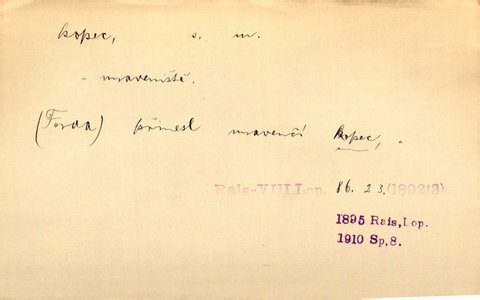 kopec, s. m.
- mraveniště.
(Forda) přinesl mravenčí kopec, .
Rais-VIII Lop. 86. 23. (1892/3)
1895 Rais, Lop.
1910 Sp, 8.